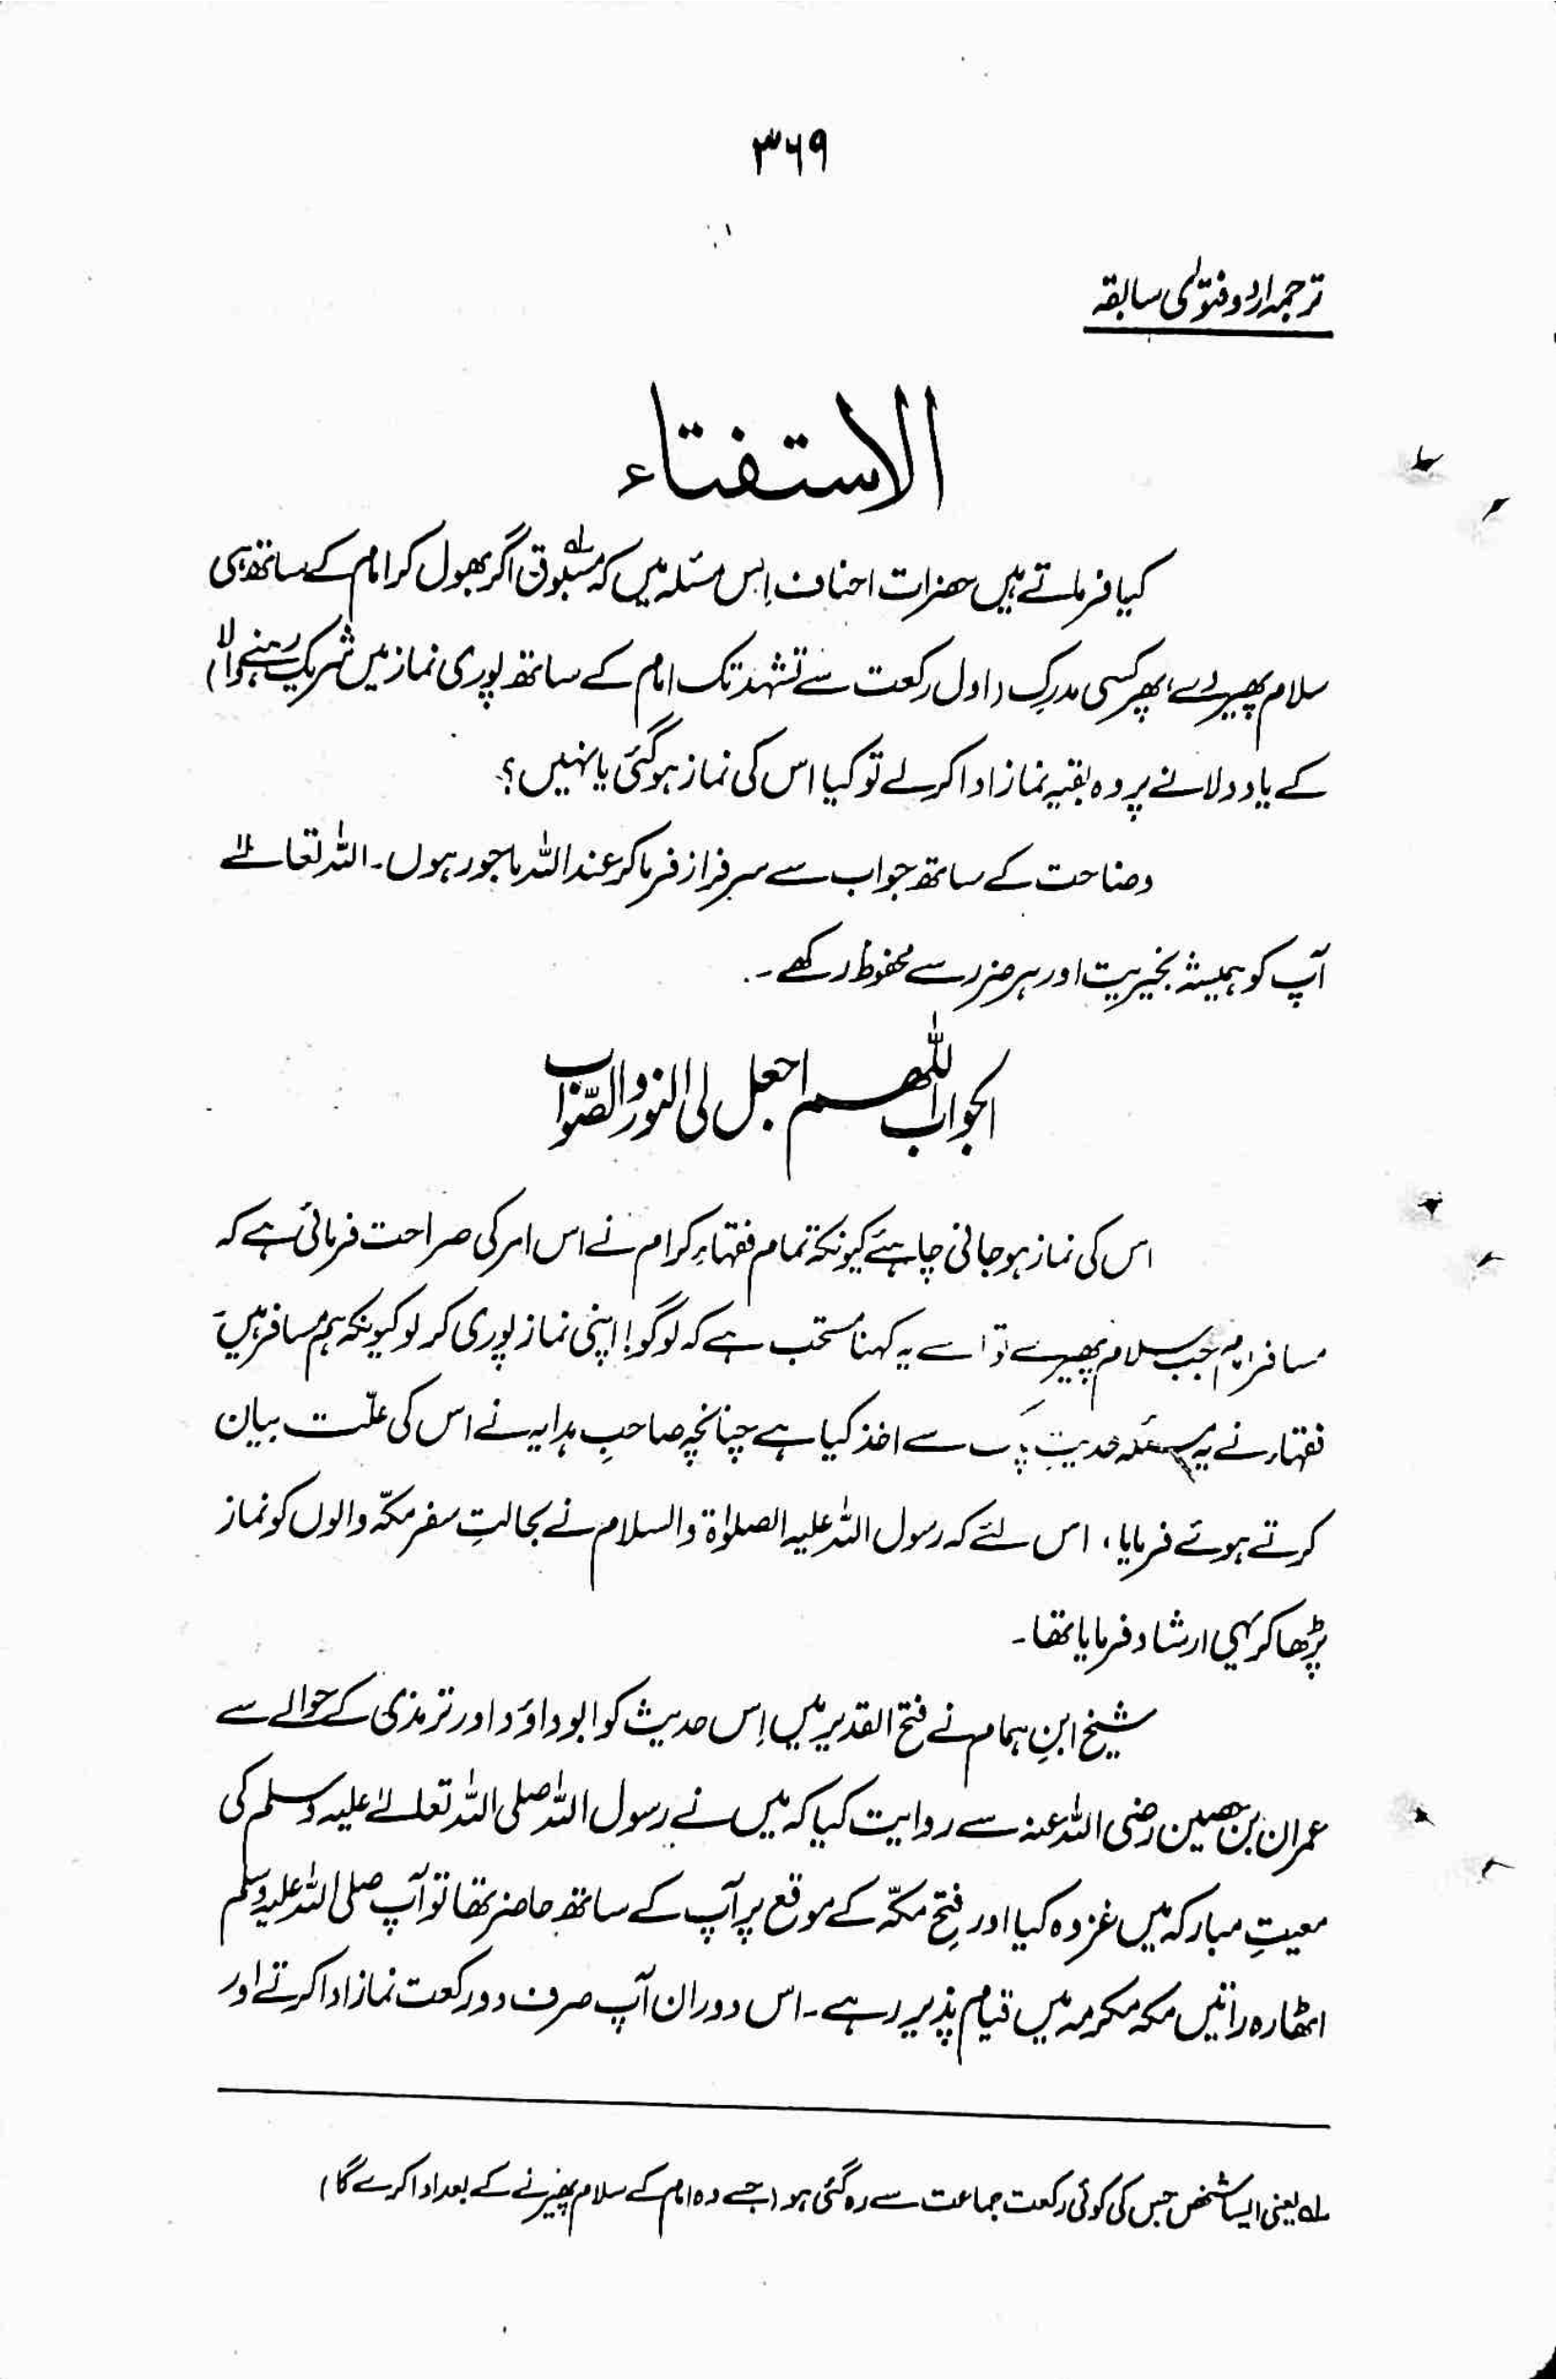 ۳۶۹
ترجمہ اردو فتوٰی سابقہ
الاستفتاء
کیا فرماتے ہیں حضرات احناف اِس مسئلہ میں کہ مسبوق ؎۱ اگر بھول کر امام کے ساتھ ہی
سلام پھیر دے، پھر کسی مدرِک (اول رکعت سے تشہد تک امام کے ساتھ پوری نماز میں شریک رہنے والا)
کے یاد دلانے پر وہ بقیہ نماز ادا کر لے تو کیا اس کی نماز ہو گئی یا نہیں؟
وضاحت کے ساتھ جواب سے سرفراز فرما کر عند اللہ ماجور ہوں۔ اللہ تعالےٰ
آپ کو ہمیشہ بخیریت اور ہر ضرر سے محفوظ رکھے۔
الجواب اللّٰھم اجعل لی النور والصّواب
اس کی نماز ہو جانی چاہئے کیونکہ تمام فقہاءِ کرام نے اس امر کی صراحت فرمائی ہے کہ
مسافر امام جب سلام پھیرے تو اسے یہ کہنا مستحب ہے کہ لوگو! اپنی نماز پوری کر لو کیونکہ ہم مسافر ہیں،
فقہاء نے یہ مسئلہ حدیثِ پاک سے اخذ کیا ہے چنانچہ صاحبِ ہدایہ نے اس کی علّت بیان
کرتے ہوئے فرمایا، اس لئے کہ رسول اللہ علیہ الصلوٰۃ والسلام نے بحالتِ سفر مکّہ والوں کو نماز
پڑھا کر یہی ارشاد فرمایا تھا۔
شیخ ابنِ ہمام نے فتح القدیر میں اِس حدیث کو ابوداؤد اور ترمذی کے حوالے سے
عمران بن حصین رضی اللہ عنہ سے روایت کیا کہ میں نے رسول اللہ صلی اللہ تعالےٰ علیہ وسلم کی
معیتِ مبارکہ میں غزوہ کیا اور فتحِ مکّہ کے موقع پر آپ کے ساتھ حاضر تھا تو آپ صلی اللہ علیہ وسلم
اٹھارہ راتیں مکہ مکرمہ میں قیام پذیر رہے۔ اس دوران آپ صرف دو رکعت نماز ادا کرتے اور
؎۱ یعنی ایسا شخص جس کی کوئی رکعت جماعت سے رہ گئی ہو (جسے وہ امام کے سلام پھیرنے کے بعد ادا کرے گا)